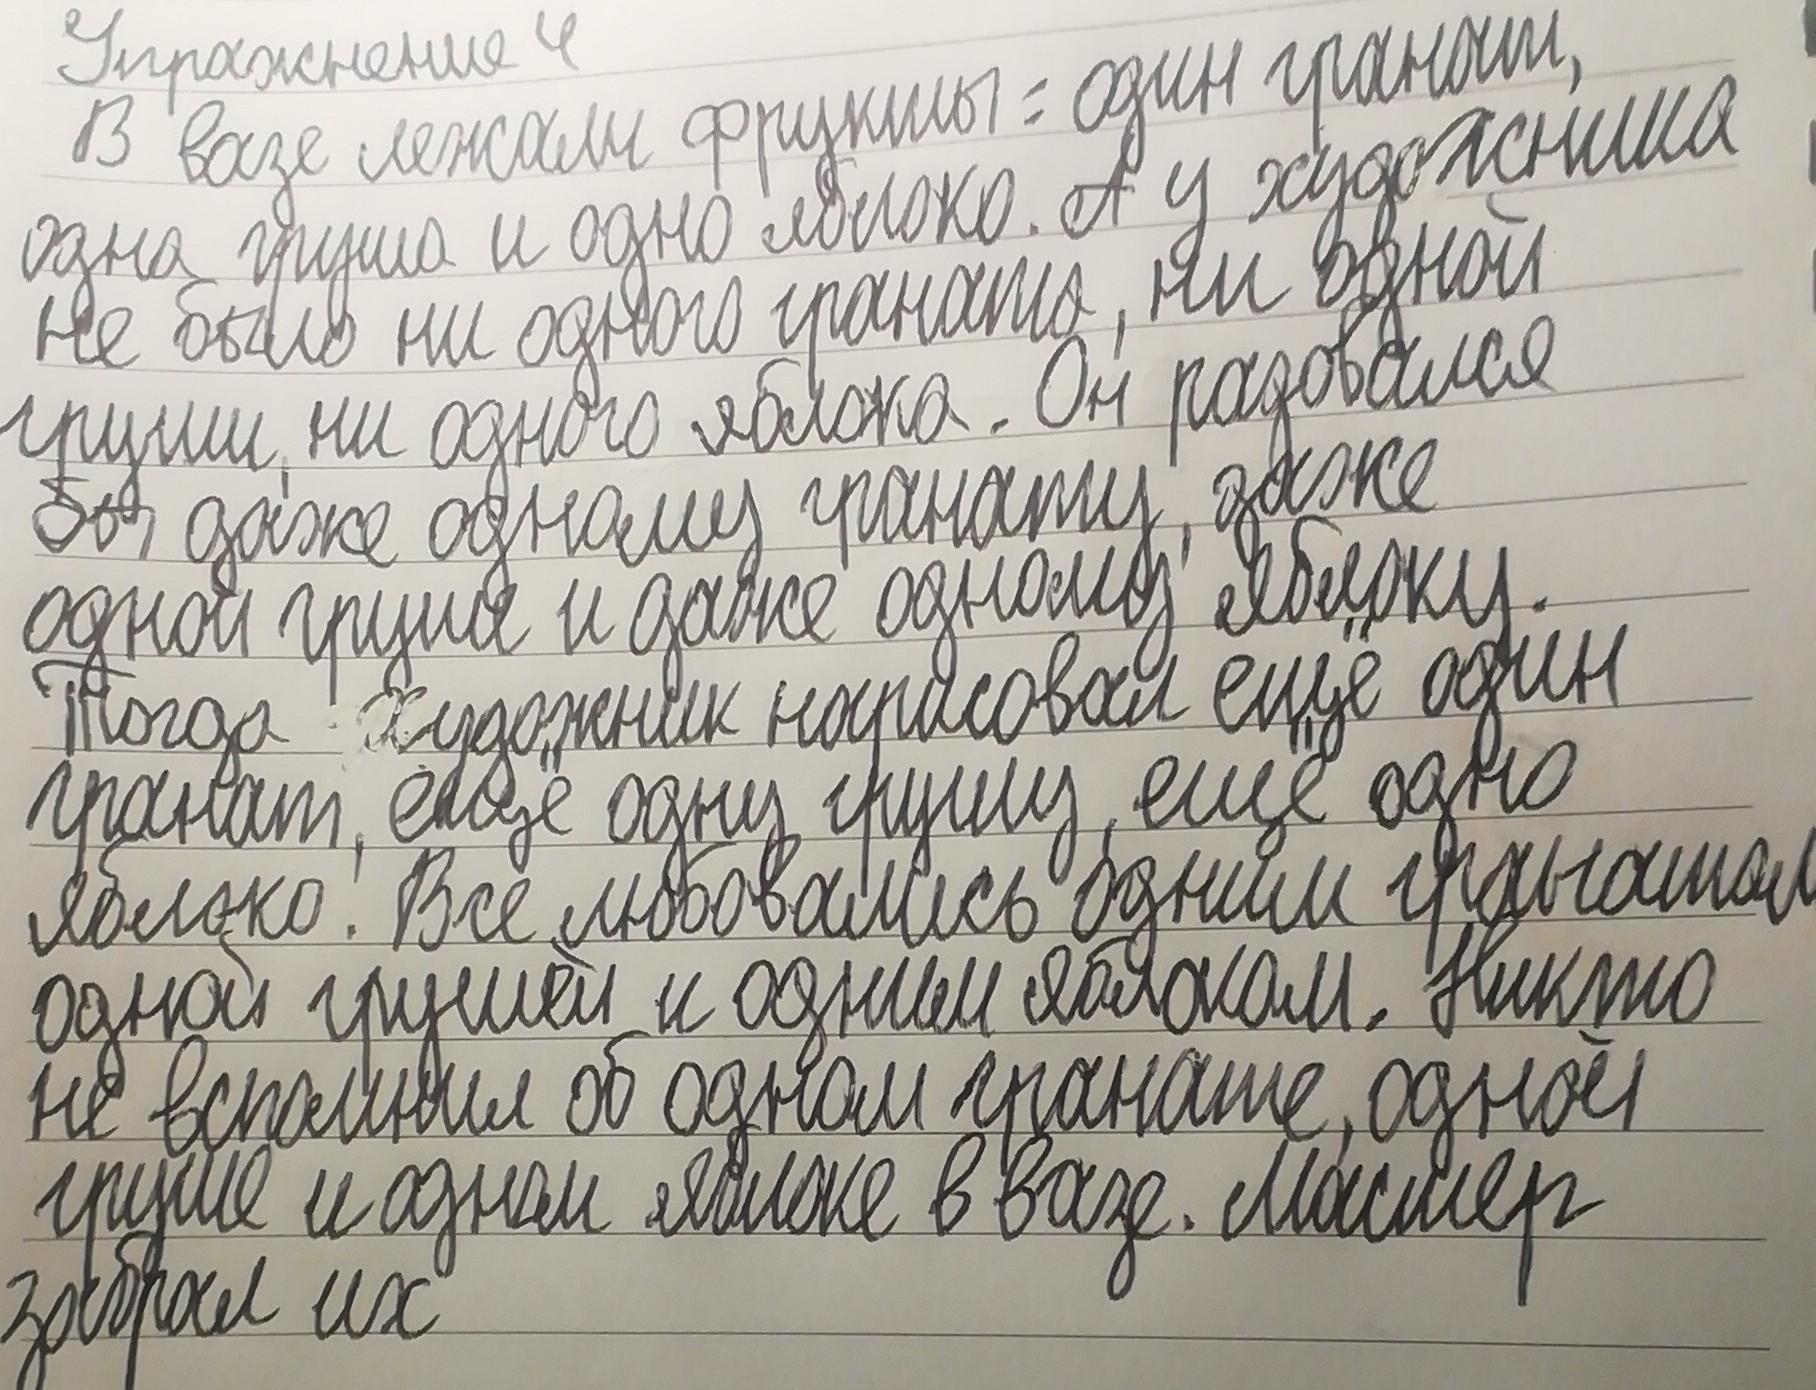 Упражнение 4
В вазе лежали фрукты = один гранат,
одна груша и одно яблоко. А у художника
не было ни одного граната, ни одной
груши, ни одного яблока. Он радовался
бы даже одному гранату, даже
одной груше и даже одному яблоку.
Тогда художник нарисовал ещё один
гранат, ещё одну грушу, ещё одно
яблоко. Все любовались одним гранатом
одной грушей и одним яблоком. Никто
не вспомнил об одном гранате, одной
груше и одном яблоке в вазе. Мастер
забрал их